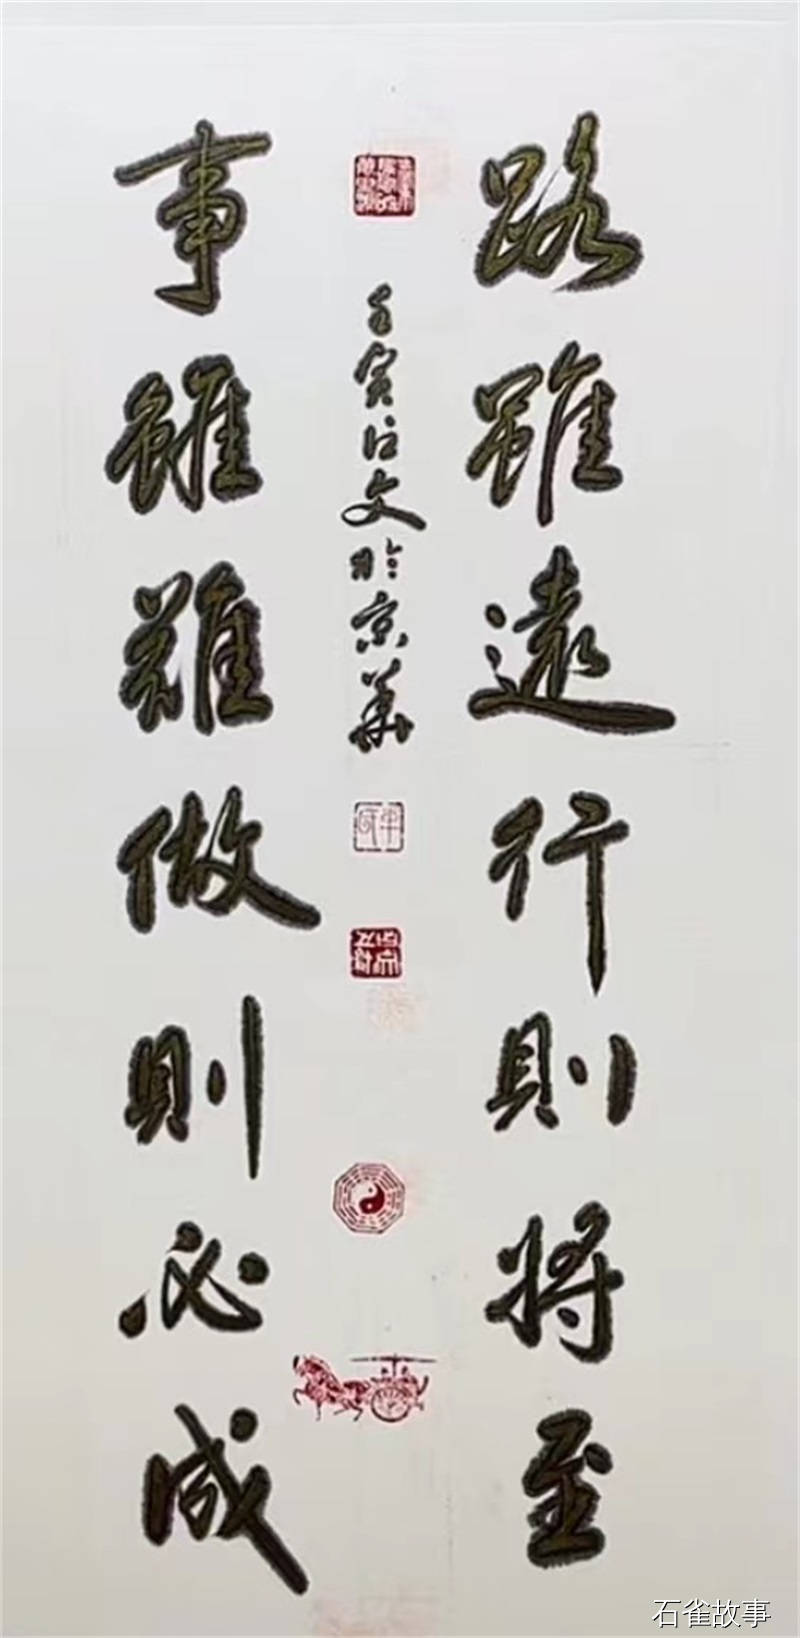 路雖遠行則將至
事雖難做則必成
壬寅
文於京華
石雀故事